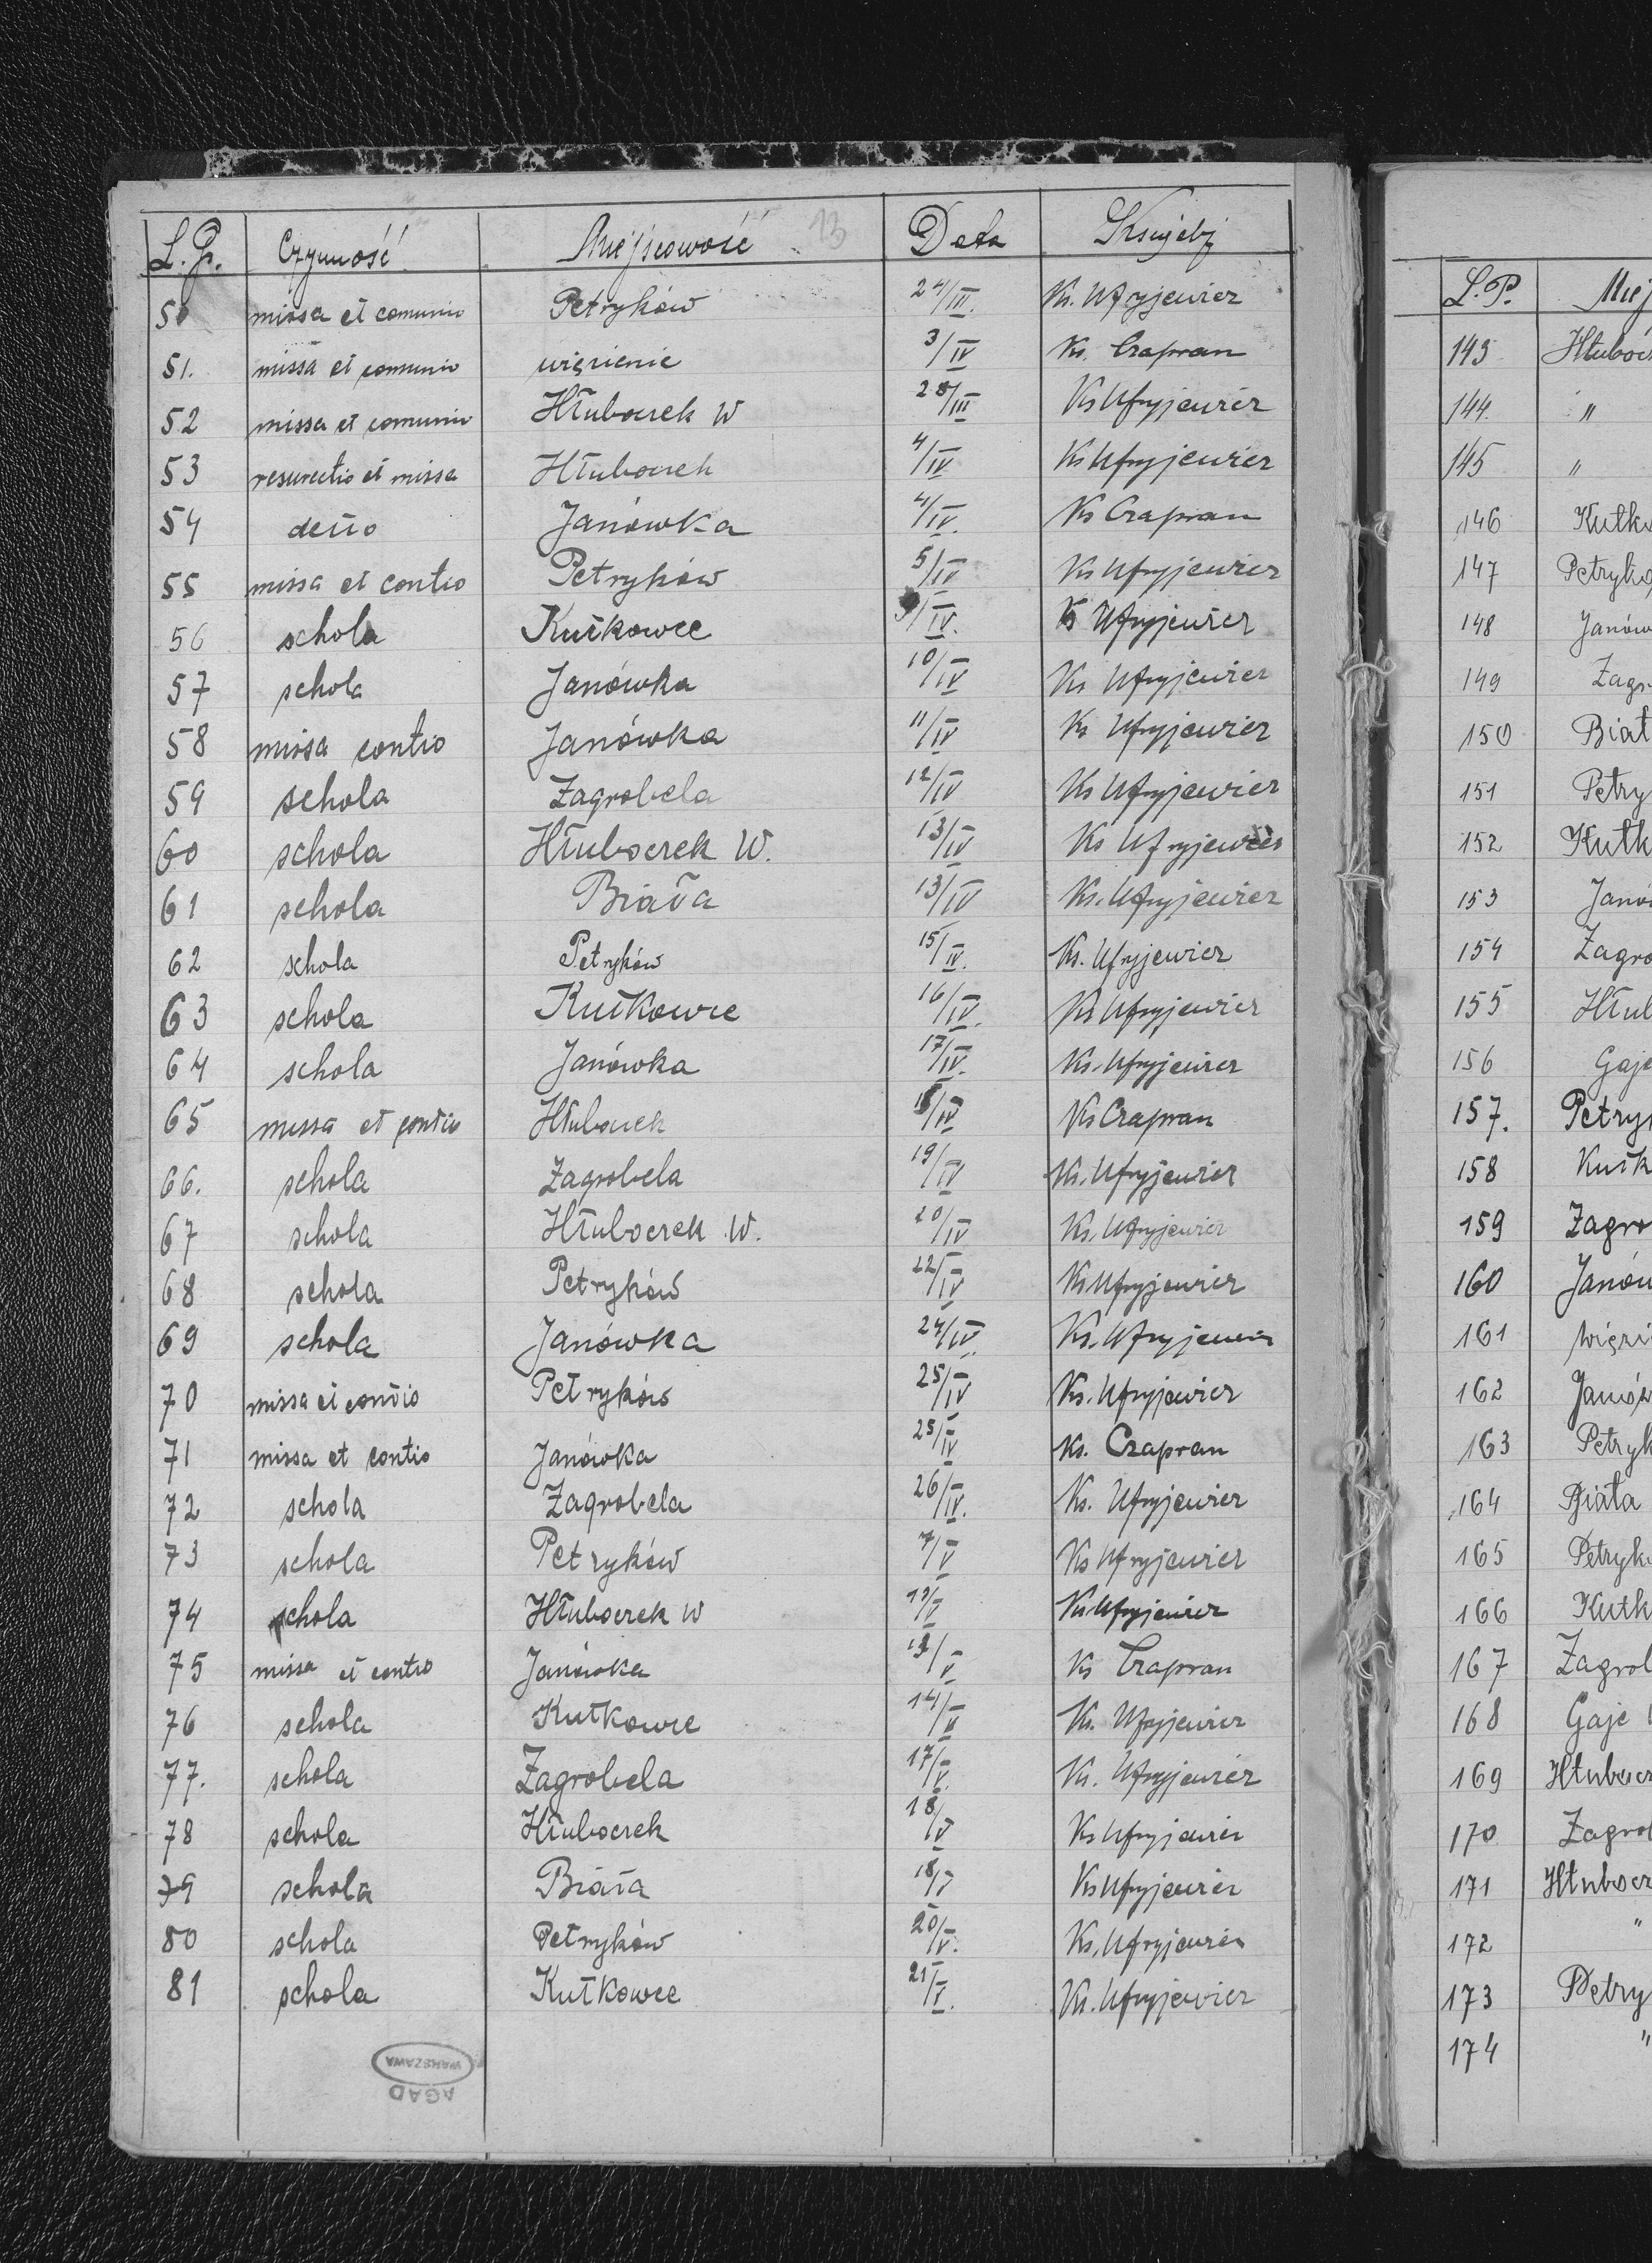 L.P. Czynność Miejscowość 13 Data Książ
50 missa et comunio Petryków 24/III. Ks. Ufryjewicz
51. missa et comunio więzienie 3/IV Ks. Czapran
52 missa et comunio Hłuboczek W 28/III Ks Ufryjewicz
53 resurectio et missa Hłuboczek 4/IV Ks Ufryjewicz
54 detto Janówka 4/IV. Ks Czapran
55 missa et contio Petryków 5/IV Ks Ufryjewicz
56 schola Kutkowce /IV. Ks Ufryjewicz
57 schola Janówka 10/IV Ks Ufryjewicz
58 missa contio Janówka 11/IV Ks Ufryjewicz
59 schola Zagrobela 12/IV Ks Ufryjewicz
60 schola Hłuboczek W. 13/IV Ks Ufryjewicz
61 schola Biała 13/IV Ks. Ufryjewicz
62 schola Petryków 15/IV. Ks. Ufryjewicz
63 schola Kutkowce 16/IV. Ks Ufryjewicz
64 schola Janówka 17/IV. Ks. Ufryjewicz
65 missa et contio Hłuboczek /IV Ks Czapran
66. schola Zagrobela 19/IV Ks. Ufryjewicz
67 schola Hłuboczek W. 20/IV Ks. Ufryjewicz
68 schola Petryków 22/IV Ks Ufryjewicz
69 schola Janówka 24/IV. Ks. Ufryjewicz
70 missa et contio Petryków 25/IV Ks. Ufryjewicz
71 missa et contio Janówka 25/IV Ks. Czapran
72 schola Zagrobela 26/IV. Ks. Ufryjewicz
73 schola Petryków 7/V Ks Ufryjewicz
74 schola Hłuboczek W /V Ks Ufryjewicz
75 missa et contio Janówka /V Ks Czapran
76 schola Kutkowce 14/V Ks. Ufryjewicz
77. schola Zagrobela 17/V. Ks. Ufryjewicz
78 schola Hłuboczek 18/V Ks Ufryjewicz
79 schola Biała 18/V Ks Ufryjewicz
80 schola Petryków 20/V. Ks. Ufryjewicz
81 schola Kutkowce 21/V. Ks. Ufryjewicz
AGAD
WARSZAWA
L.P. Miej
143 Hłubocz
144. "
145 "
146 Kutko
147 Petryko
148 Janów
149 Zagr
150 Biał
151 Petry
152 Kutk
153 Janó
154 Zagro
155 Hłub
156 Gaje
157. Petry
158 Kutk
159 Zagro
160 Janów
161 więzi
162 Janów
163 Petryk
164 Biała
165 Petryk
166 Kutk
167 Zagrob
168 Gaje
169 Hłubocz
170 Zagrob
171 Hłubocz
172 "
173 Petry
174 "